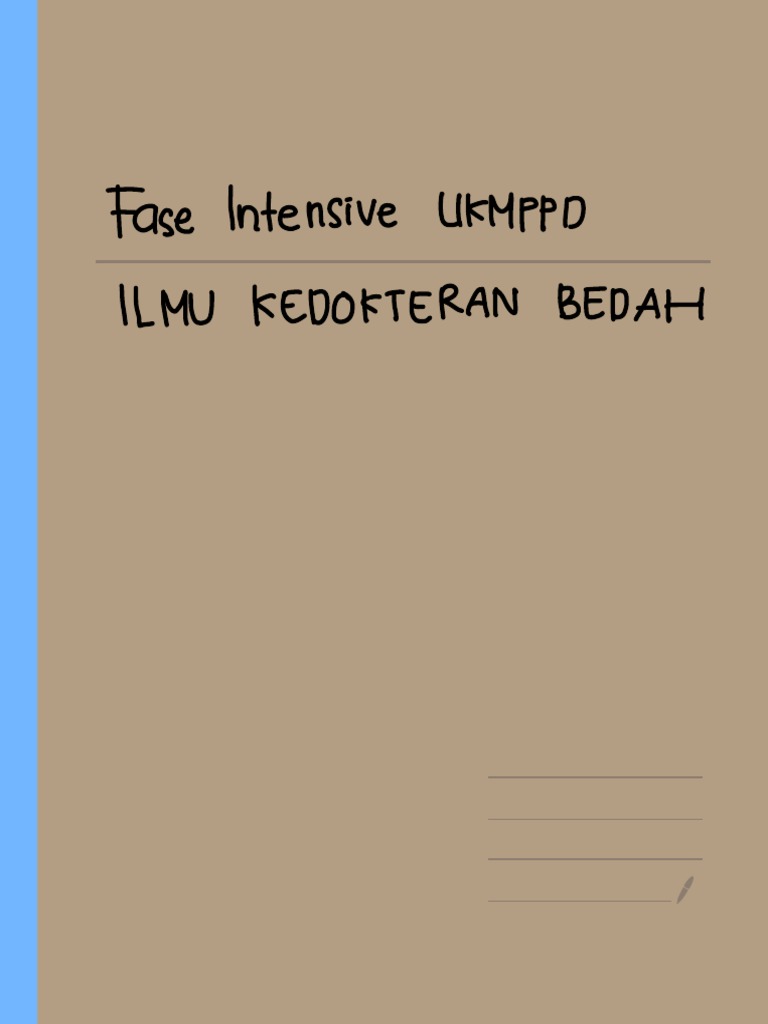 Fase Intensive UKMPPD
ILMU KEDOKTERAN BEDAH